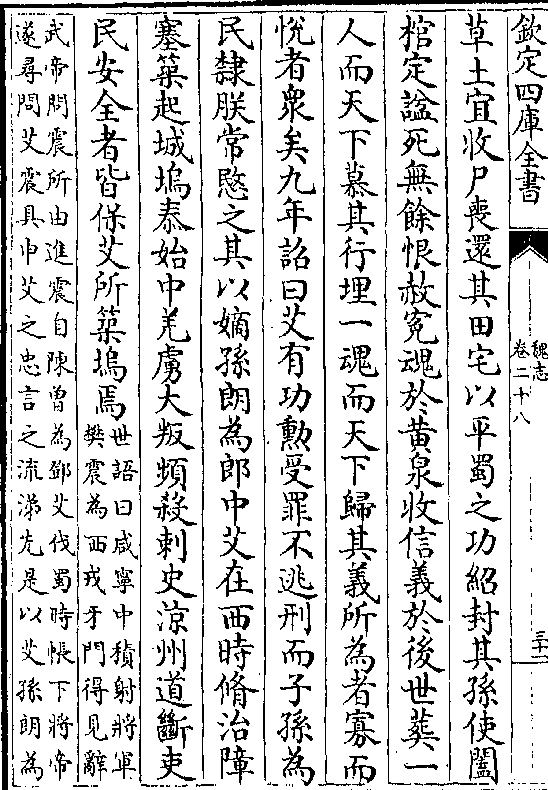 欽定四庫全書
魏志
卷二十八
三十一
草土宜收尸喪還其田宅以平蜀之功紹封其孫使闔
棺定諡死無餘恨赦冤魂於黄泉收信義於後世葬一
人而天下慕其行埋一魂而天下歸其義所為者寡而
悅者衆矣九年詔曰艾有功勲受罪不逃刑而子孫為
民隸朕常愍之其以嫡孫朗為郎中艾在西時脩治障
塞築起城塢泰始中羌虜大叛頻殺刺史涼州道斷吏
民安全者皆保艾所築塢焉
世語曰咸寧中積射將軍
樊震為西戎牙門得見辭
武帝問震所由進震自陳曾為鄧艾伐蜀時帳下將帝
遂尋問艾震具申艾之忠言之流涕先是以艾孫朗為